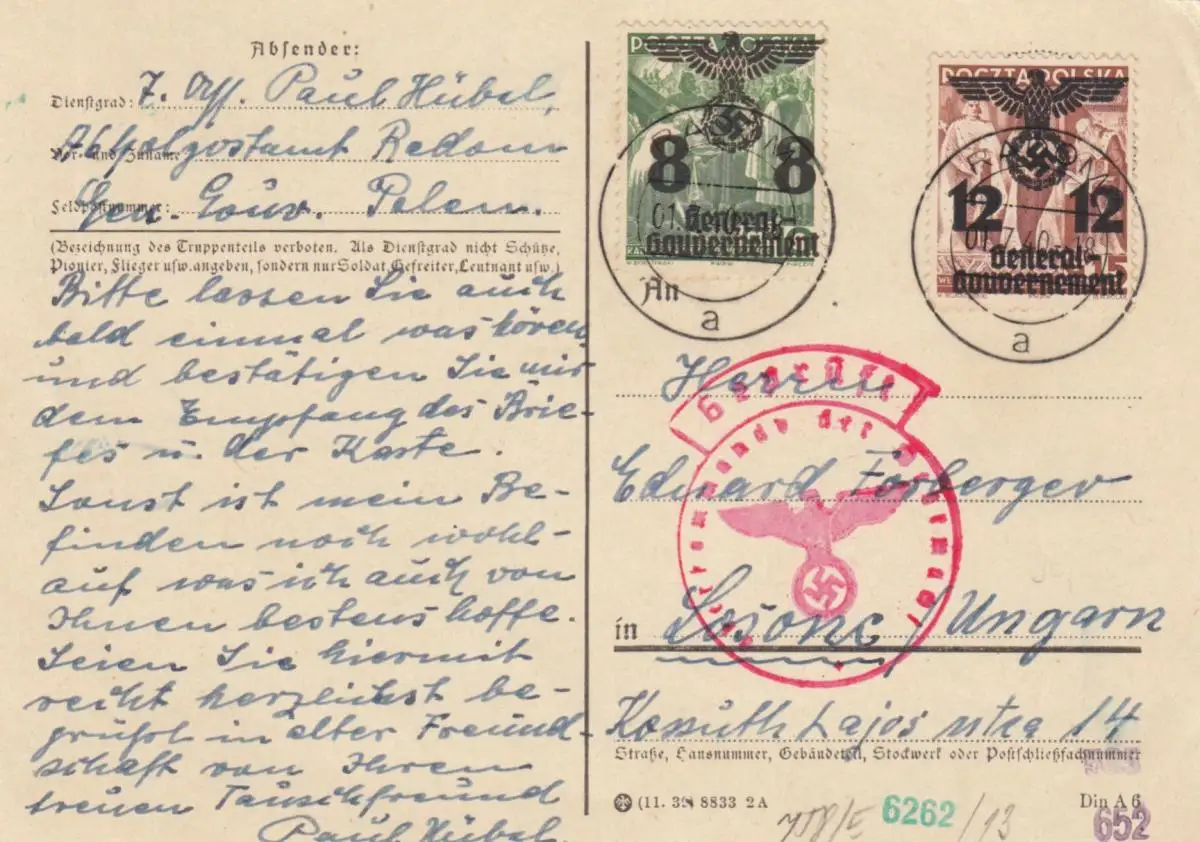 Absender:
Dienstgrad: Paul Hübel,
Vor- und Zuname Radom
Feldpostnummer: Gen. Gouv. Polen.
(Bezeichnung des Truppenteils verboten. Als Dienstgrad nicht Schütze,
Pionier, Flieger usw. angeben, sondern nur Soldat, Gefreiter, Leutnant usw.)
Bitte lassen Sie auch
bald einmal was hören
und bestätigen Sie mir
dem Empfang des Brie-
fes u. der Karte.
Sonst ist mein Be-
finden noch wohl-
auf was ich auch von
Ihnen bestens hoffe.
Seien Sie hiermit
recht herzlichst be-
grüßt in alter Freund-
schaft von Ihrem
treuen Tauschfreund
Paul Hübel.
POCZTA POLSKA
8 8
General-
Gouvernement
RADOM
a
POCZTA POLSKA
12 12
General-
Gouvernement
RADOM
01.7.40.-18
a
An
Herrn
Geprüft
Oberkommando der Wehrmacht
Eduard Forberger
in Losonc / Ungarn
Kossuth Lajos utca 14
Straße, Hausnummer, Gebäudeteil, Stockwerk oder Postschließfachnummer
(11. 39) 8833 2A
Din A 6
6262 /13
652